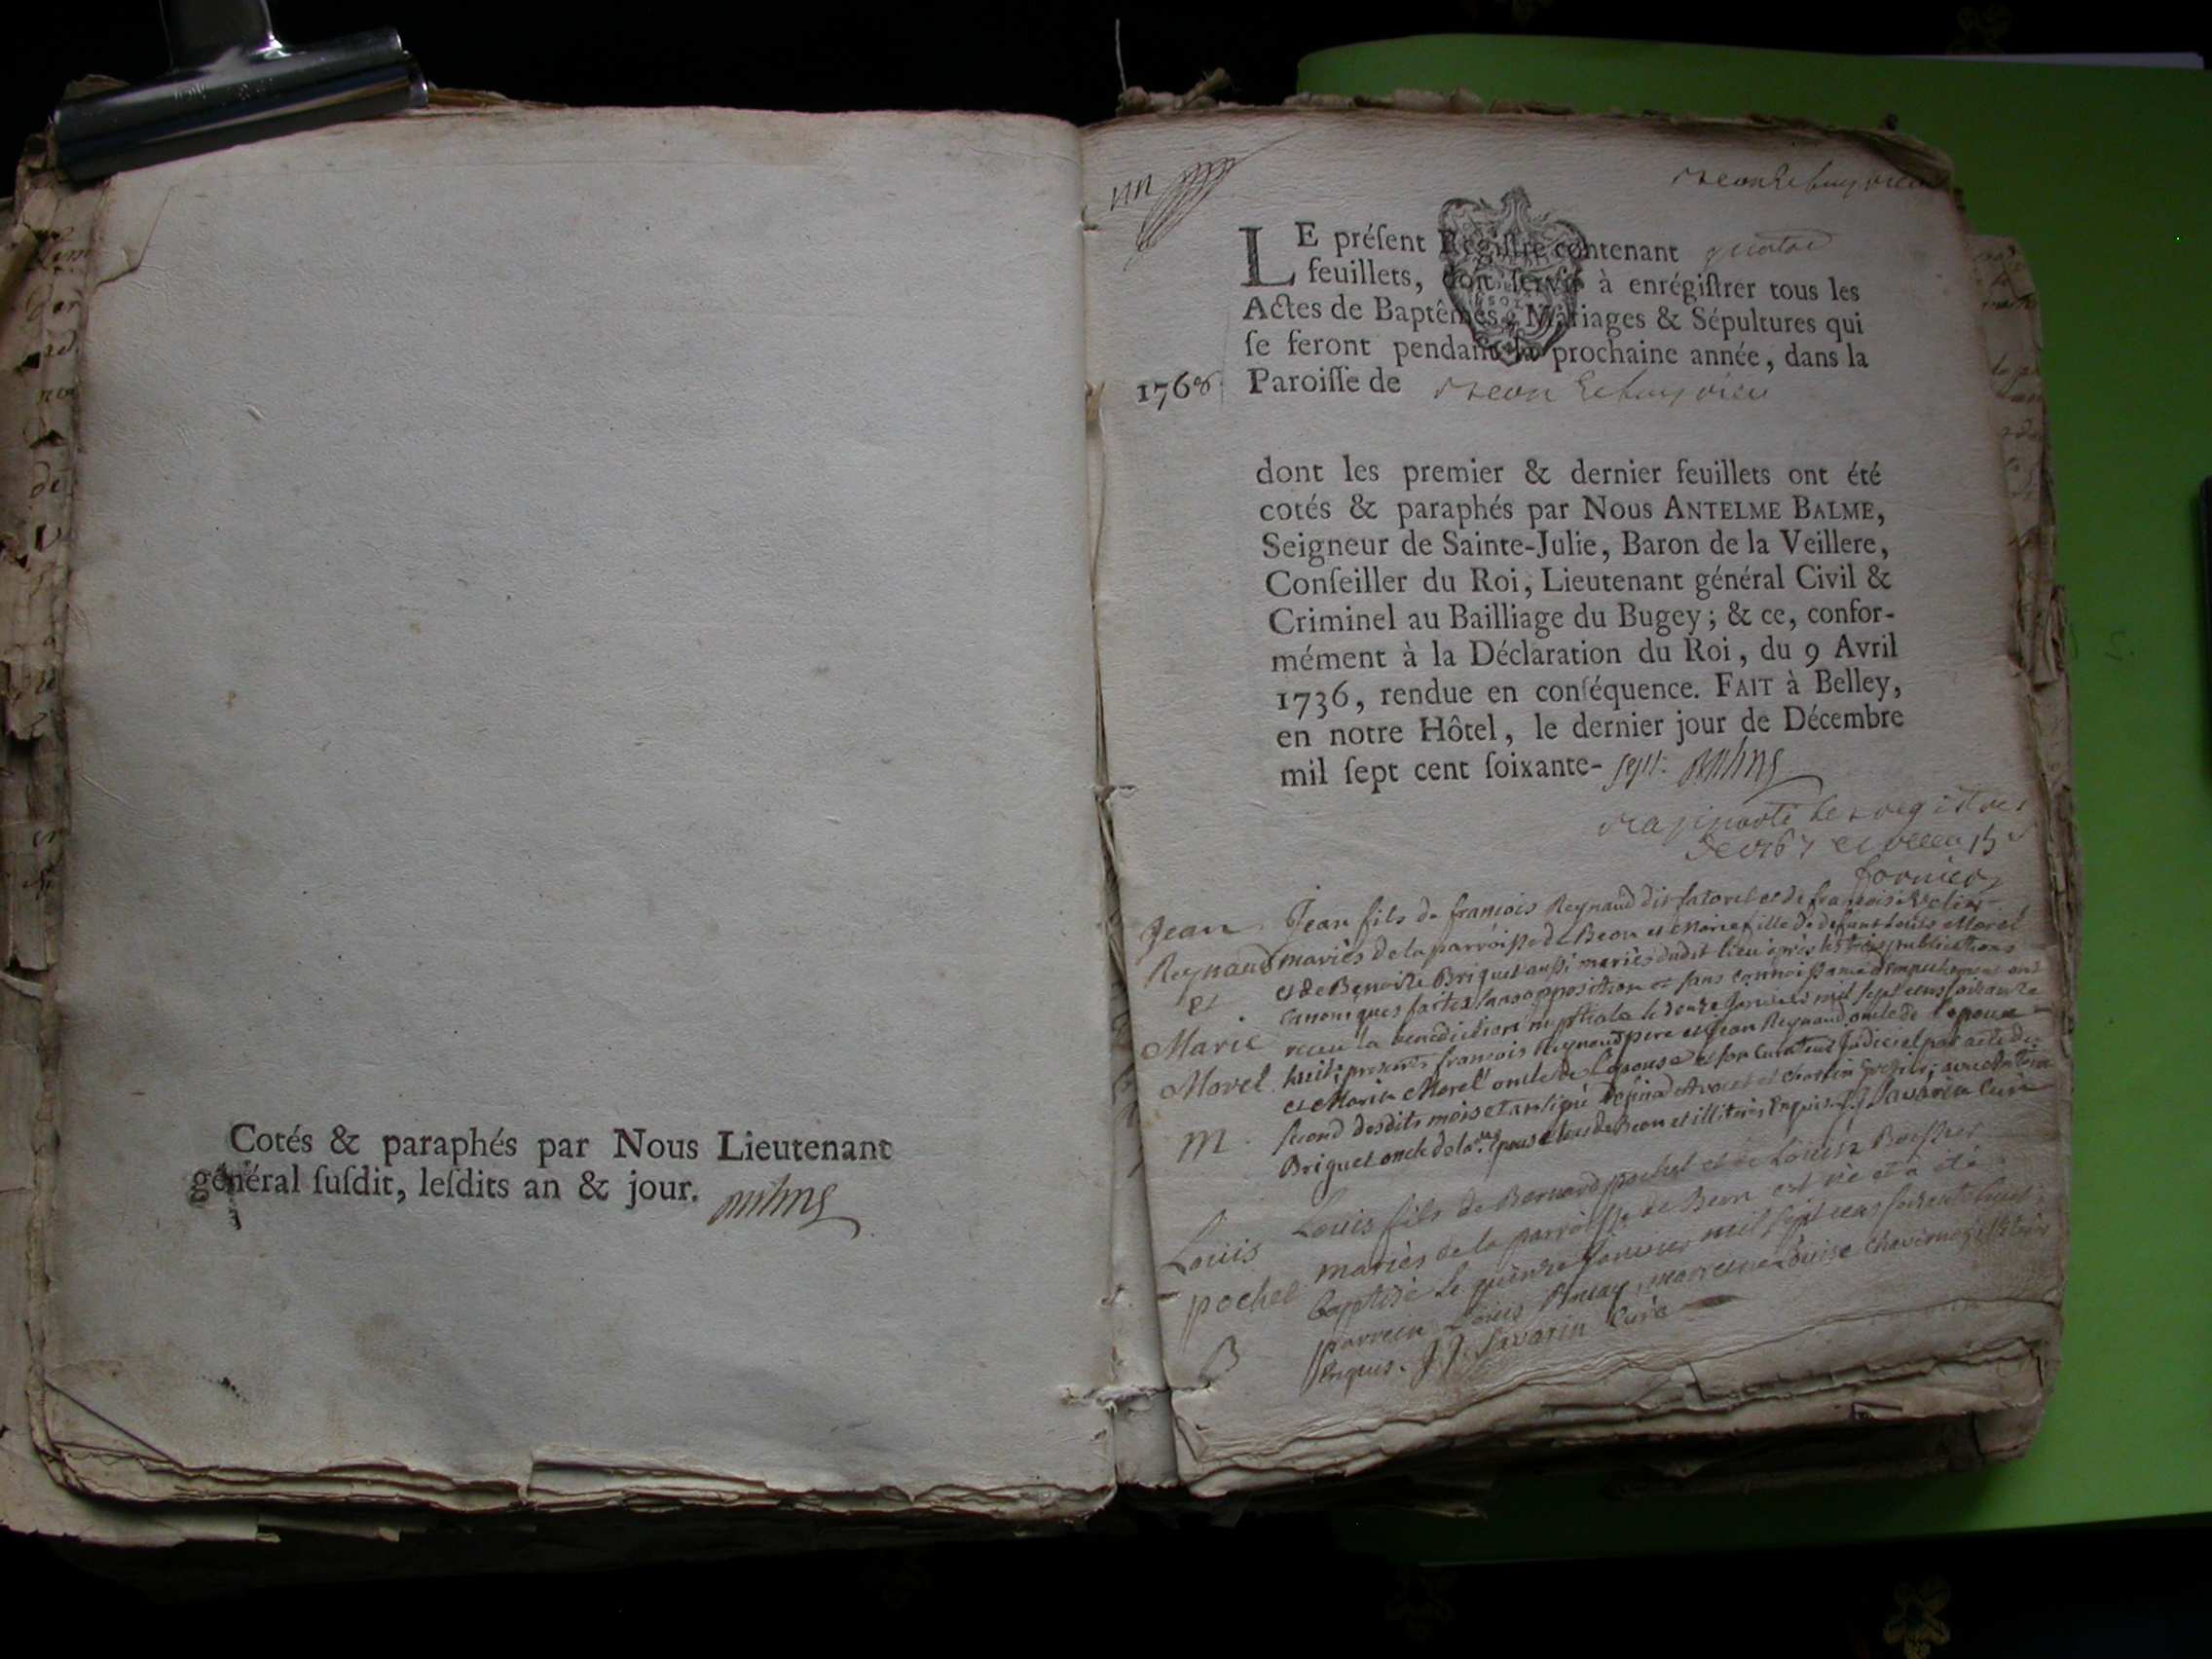 Cotés & paraphés par Nous Lieutenant
général ſuſdit, leſdits an & jour.
un
LE préſent Regiſtre contenant quatre
feuillets, doit ſervir à enrégiſtrer tous les
Actes de Baptêmes, Mariages & Sépultures qui
ſe feront pendant la prochaine année, dans la
1768. Paroiſſe de
dont les premier & dernier feuillets ont été
cotés & paraphés par Nous ANTELME BALME,
Seigneur de Sainte-Julie, Baron de la Veillere,
Conſeiller du Roi, Lieutenant général Civil &
Criminel au Bailliage du Bugey; & ce, confor-
mément à la Déclaration du Roi, du 9 Avril
1736, rendue en conſéquence. FAIT à Belley,
en notre Hôtel, le dernier jour de Décembre
mil ſept cent ſoixante- sept.
raporté les registres
de 1767
fornier
Jean Jean fils de francois Reynaud dit et de francoise
Reynaud mariés de la parroisse de Beon et Marie fille de defunt Louis Morel
et et de Benoite Briquet aussi mariés dudit lieu après les trois publications
canoniques faites sans opposition et sans connoissance d'empechement ont
Marie receu la benediction nuptiale le douze Janvier mil sept cens soixante
Morel huit; presents francois Reynaud pere et Jean Reynaud oncle de l'epoux
et Morel oncle de l'epouse et son Curateur Judiciel par acte du
M. second desdits mois et an signé
Briquet oncle de la epouse tous de Beon et illiterés Enquis. J J Savarin Curé
Louis Louis fils de Bernard pochet et de Louise
pochet mariés de la parroisse de Beon est né et a été
baptisé le quinze Janvier mil sept cens soixante huit;
B parrein Louis marreine Louise illiterés
Enquis. J J. Savarin Curé